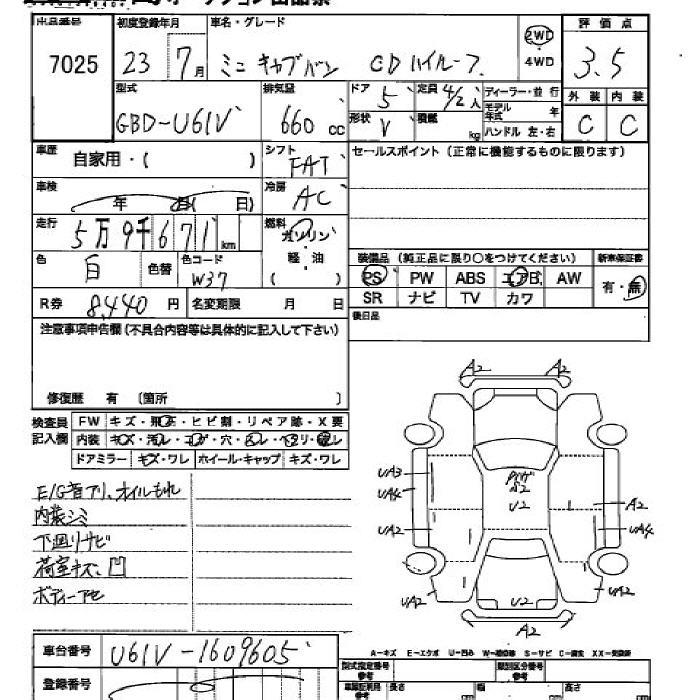 出品番号 初度登録年月 車名・グレード 評価点
7025 23 7月 ミニキャブバン CDハイルーフ 2WD ・ 4WD 3.5
型式 排気量 ドア 定員 ディーラー・並行 外装 内装
GBD-U61V 660 cc 5 4/2人 モデル年式 年 C C
形状 V 積載 kg ハンドル 左・右
車歴 自家用・( ) シフト FAT セールスポイント(正常に機能するものに限ります)
車検 年 月( 日) 冷房 AC
走行 5万9千671km 燃料 ガソリン・軽・油 ( )
色 白 色替 色コード W37
装備品(純正品に限り○をつけてください) 新車保証書
PS PW ABS エアB. AW 有・無
SR ナビ TV カワ
R券 8,440円 名変期限 月 日 後日品
注意事項申告欄(不具合内容等は具体的に記入して下さい)
修復歴 有 (箇所 )
検査員記入欄 FW キズ・飛石・ヒビ割・リペア跡・X要
内装 キズ・汚レ・コゲ・穴・
ドアミラー キズ・ワレ ホイール・キャップ キズ・ワレ
E/G音アリ、オイルもれ
内装シミ
下廻リサビ
荷室キズ、凹
ボディーアセ
A2 A2
UA3
UA4
UA2
UA2
S2
U2
U2
A2
UA4
UA2
A2
A-キズ E-エクボ U-凹み S-サビ
車台番号 U61V-1609605
登録番号
型式指定番号 類別区分番号
長さ 幅 高さ